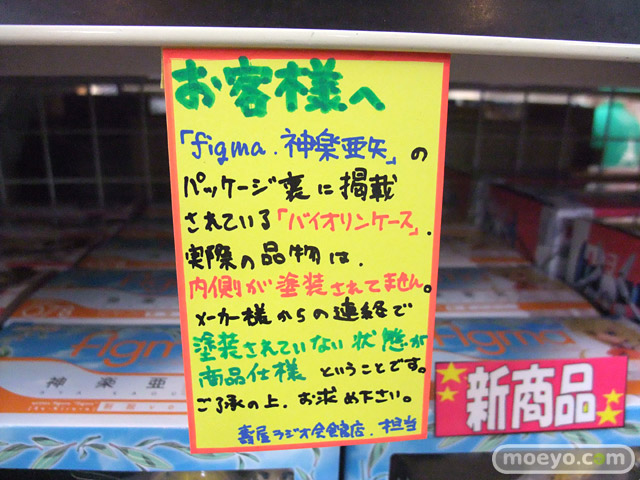 お客様へ
「figma.神楽亜矢」の
パッケージ裏に掲載
されている「バイオリンケース」.
実際の品物は.
内側が塗装されてません。
メーカー様からの連絡で
塗装されていない状態が
商品仕様 ということです。
ご了承の上.お求め下さい。
壽屋ラジオ会館店.担当
新商品
figma
figma
神楽亜
moeyo.com